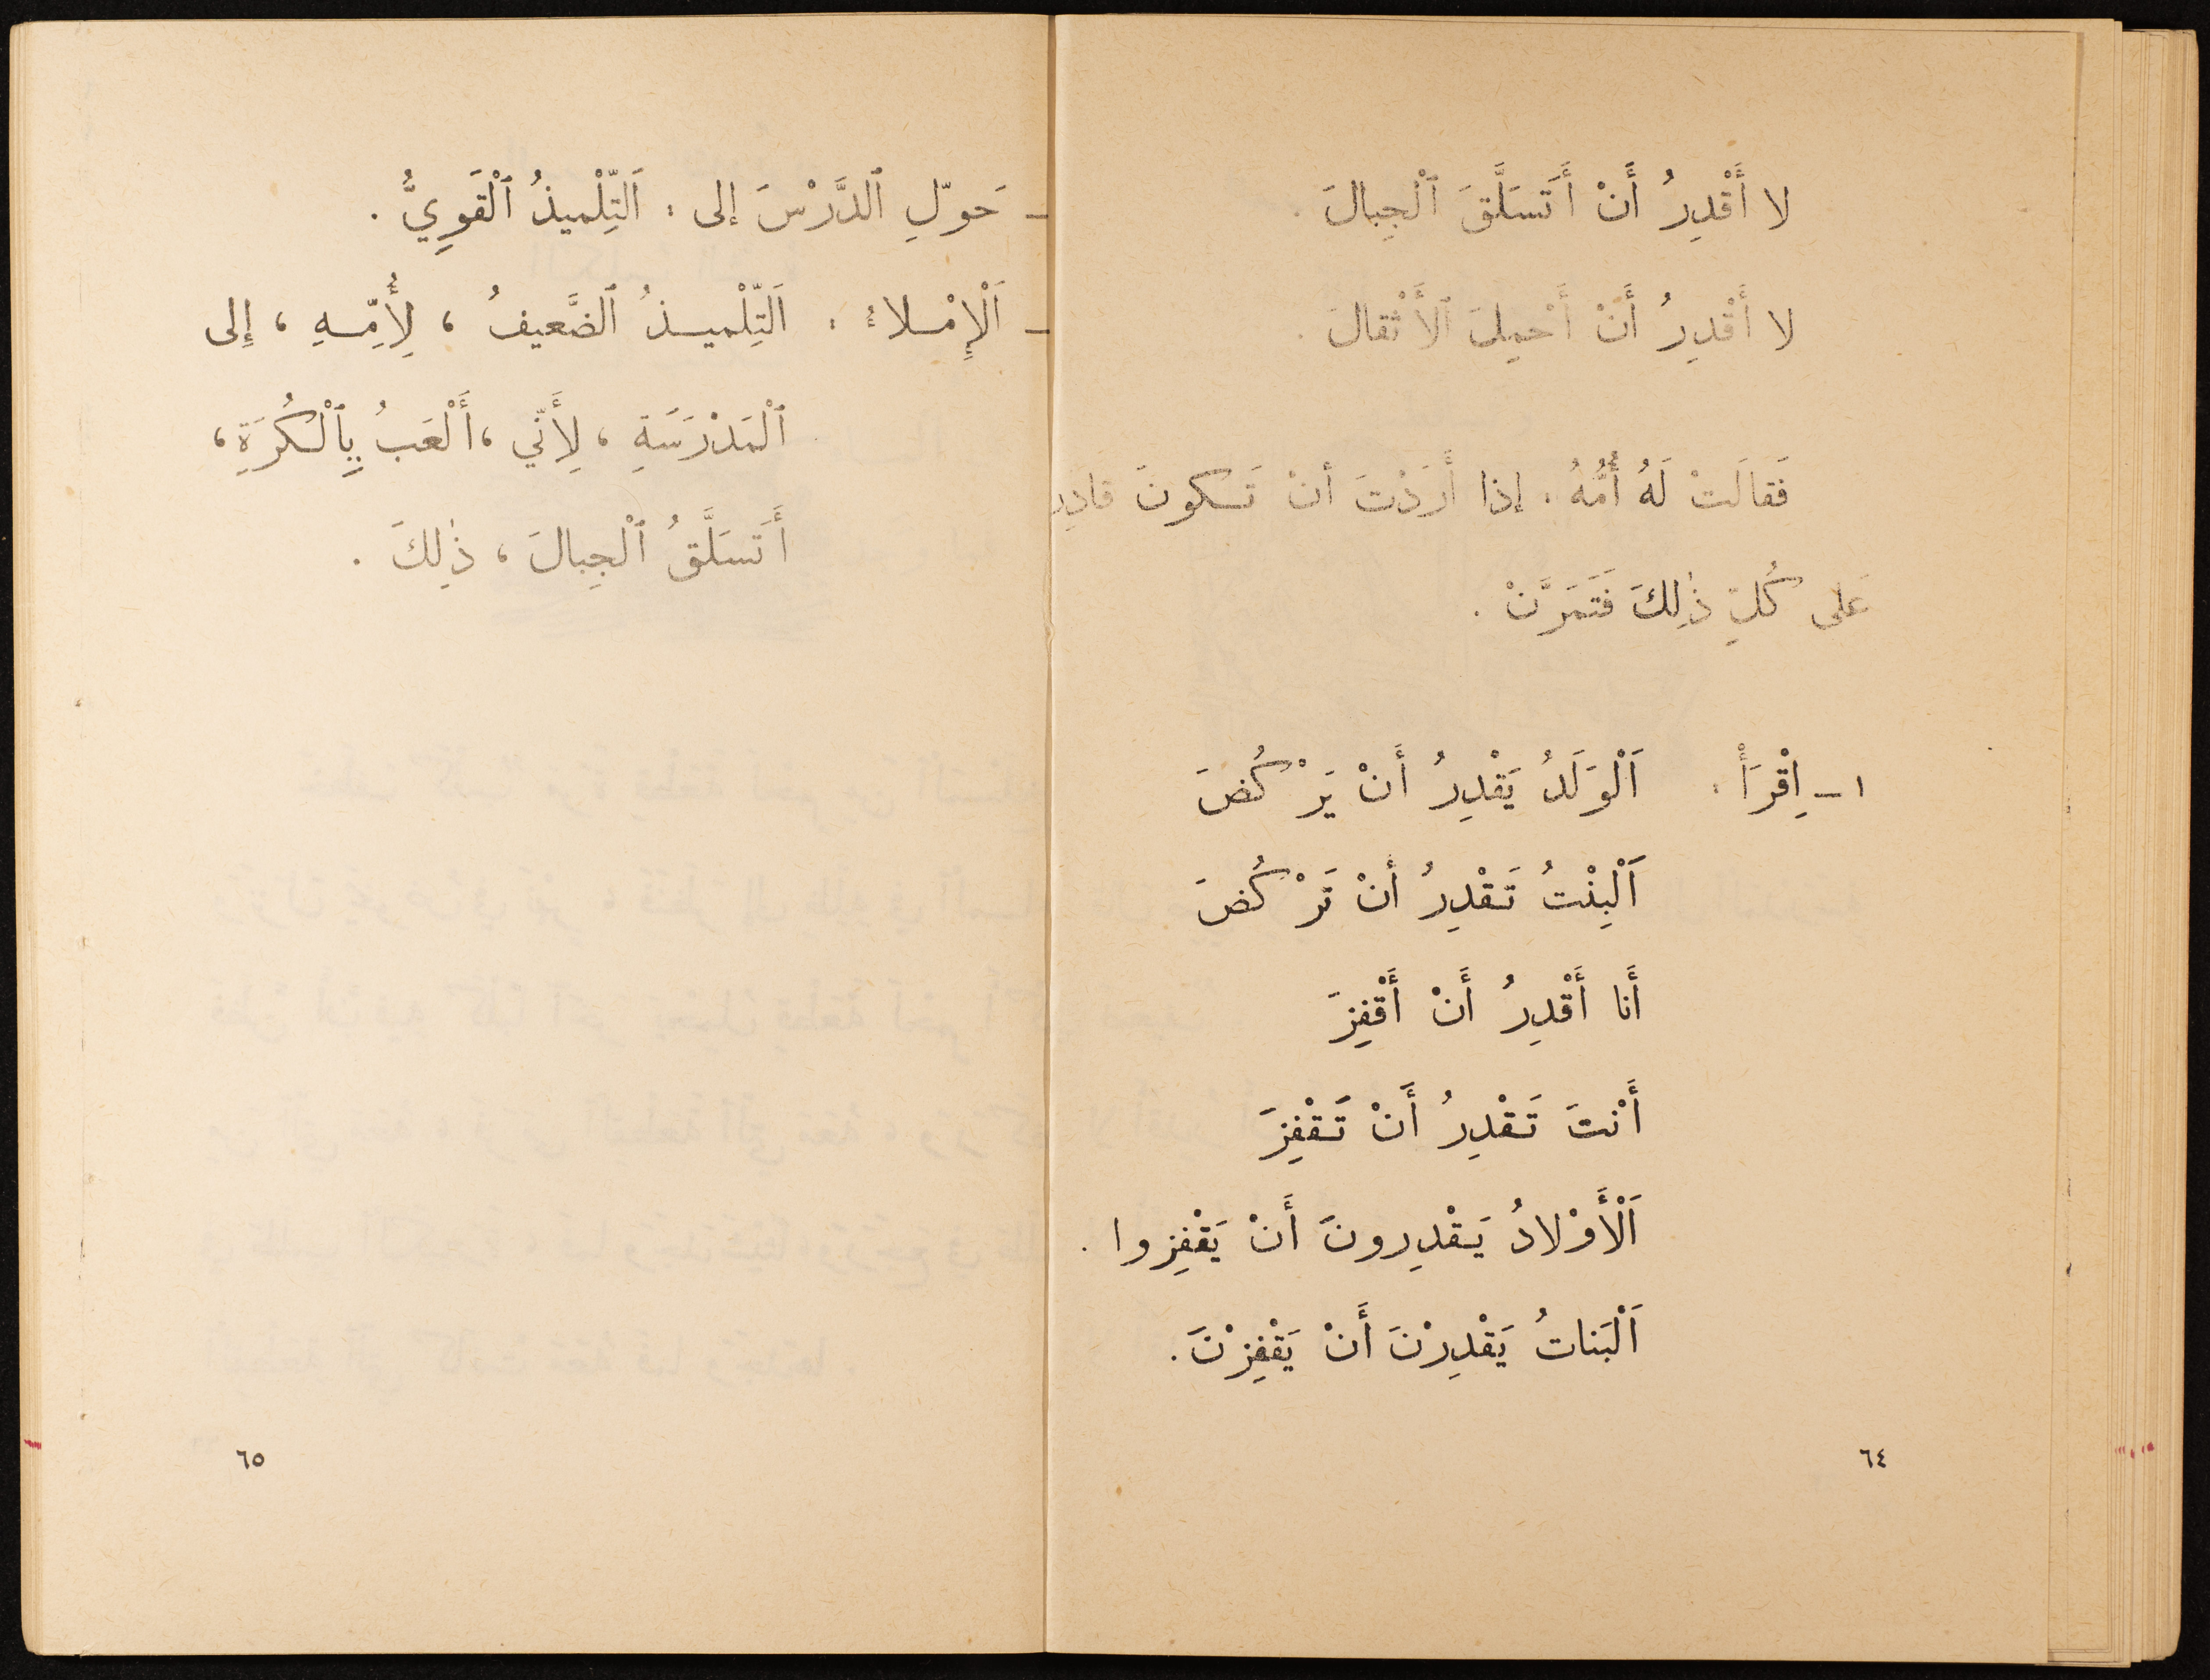 لا أَقْدِرُ أَنْ أَتَسَلَّقَ ٱلْجِبالَ .
لا أَقْدِرُ أَنْ أَحْمِلَ ٱلأَثْقالَ .
فَقالَتْ لَهُ أُمُّهُ : إذا أَرَدْتَ أنْ تَكونَ قادِر
عَلى كُلِّ ذٰلِكَ فَتَمَرَّنْ .
١ - اِقْرَأْ : اَلْوَلَدُ يَقْدِرُ أَنْ يَرْكُضَ
اَلْبِنْتُ تَقْدِرُ أنْ تَرْكُضَ
أَنا أَقْدِرُ أَنْ أَقْفِزَ
أَنْتَ تَقْدِرُ أَنْ تَقْفِزَ
اَلْأَوْلادُ يَقْدِرونَ أَنْ يَقْفِزوا .
اَلْبَناتُ يَقْدِرْنَ أَنْ يَقْفِزْنَ .
٦٤
- حَوِّلِ ٱلدَّرْسَ إلى : اَلتِّلْميذُ ٱلْقَوِيُّ .
- اَلْإِمْلاءُ : اَلتِّلْميذُ ٱلضَّعيفُ ، لِأُمِّهِ ، إِلى
ٱلْمَدْرَسَةِ ، لِأَنّي ، أَلْعَبُ بِٱلْكُرَةِ ،
أَتَسَلَّقُ ٱلْجِبالَ ، ذٰلِكَ .
٦٥